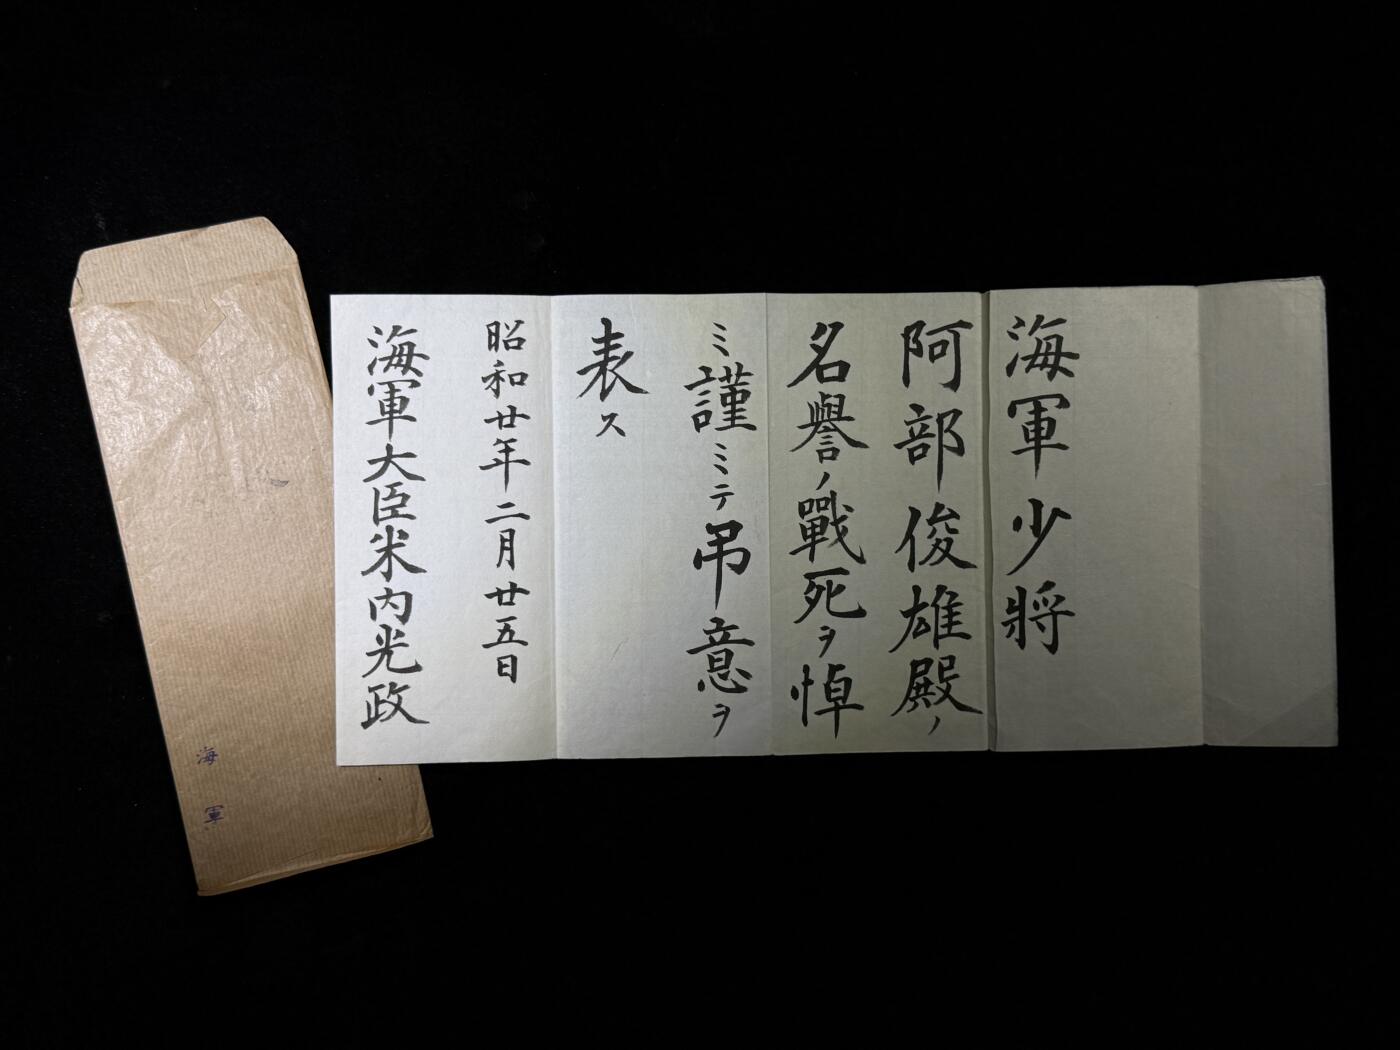 海軍少將
阿部俊雄殿ノ
名譽ノ戰死ヲ悼
ミ謹ミテ弔意ヲ
表ス
昭和廿年二月廿五日
海軍大臣米内光政
海軍